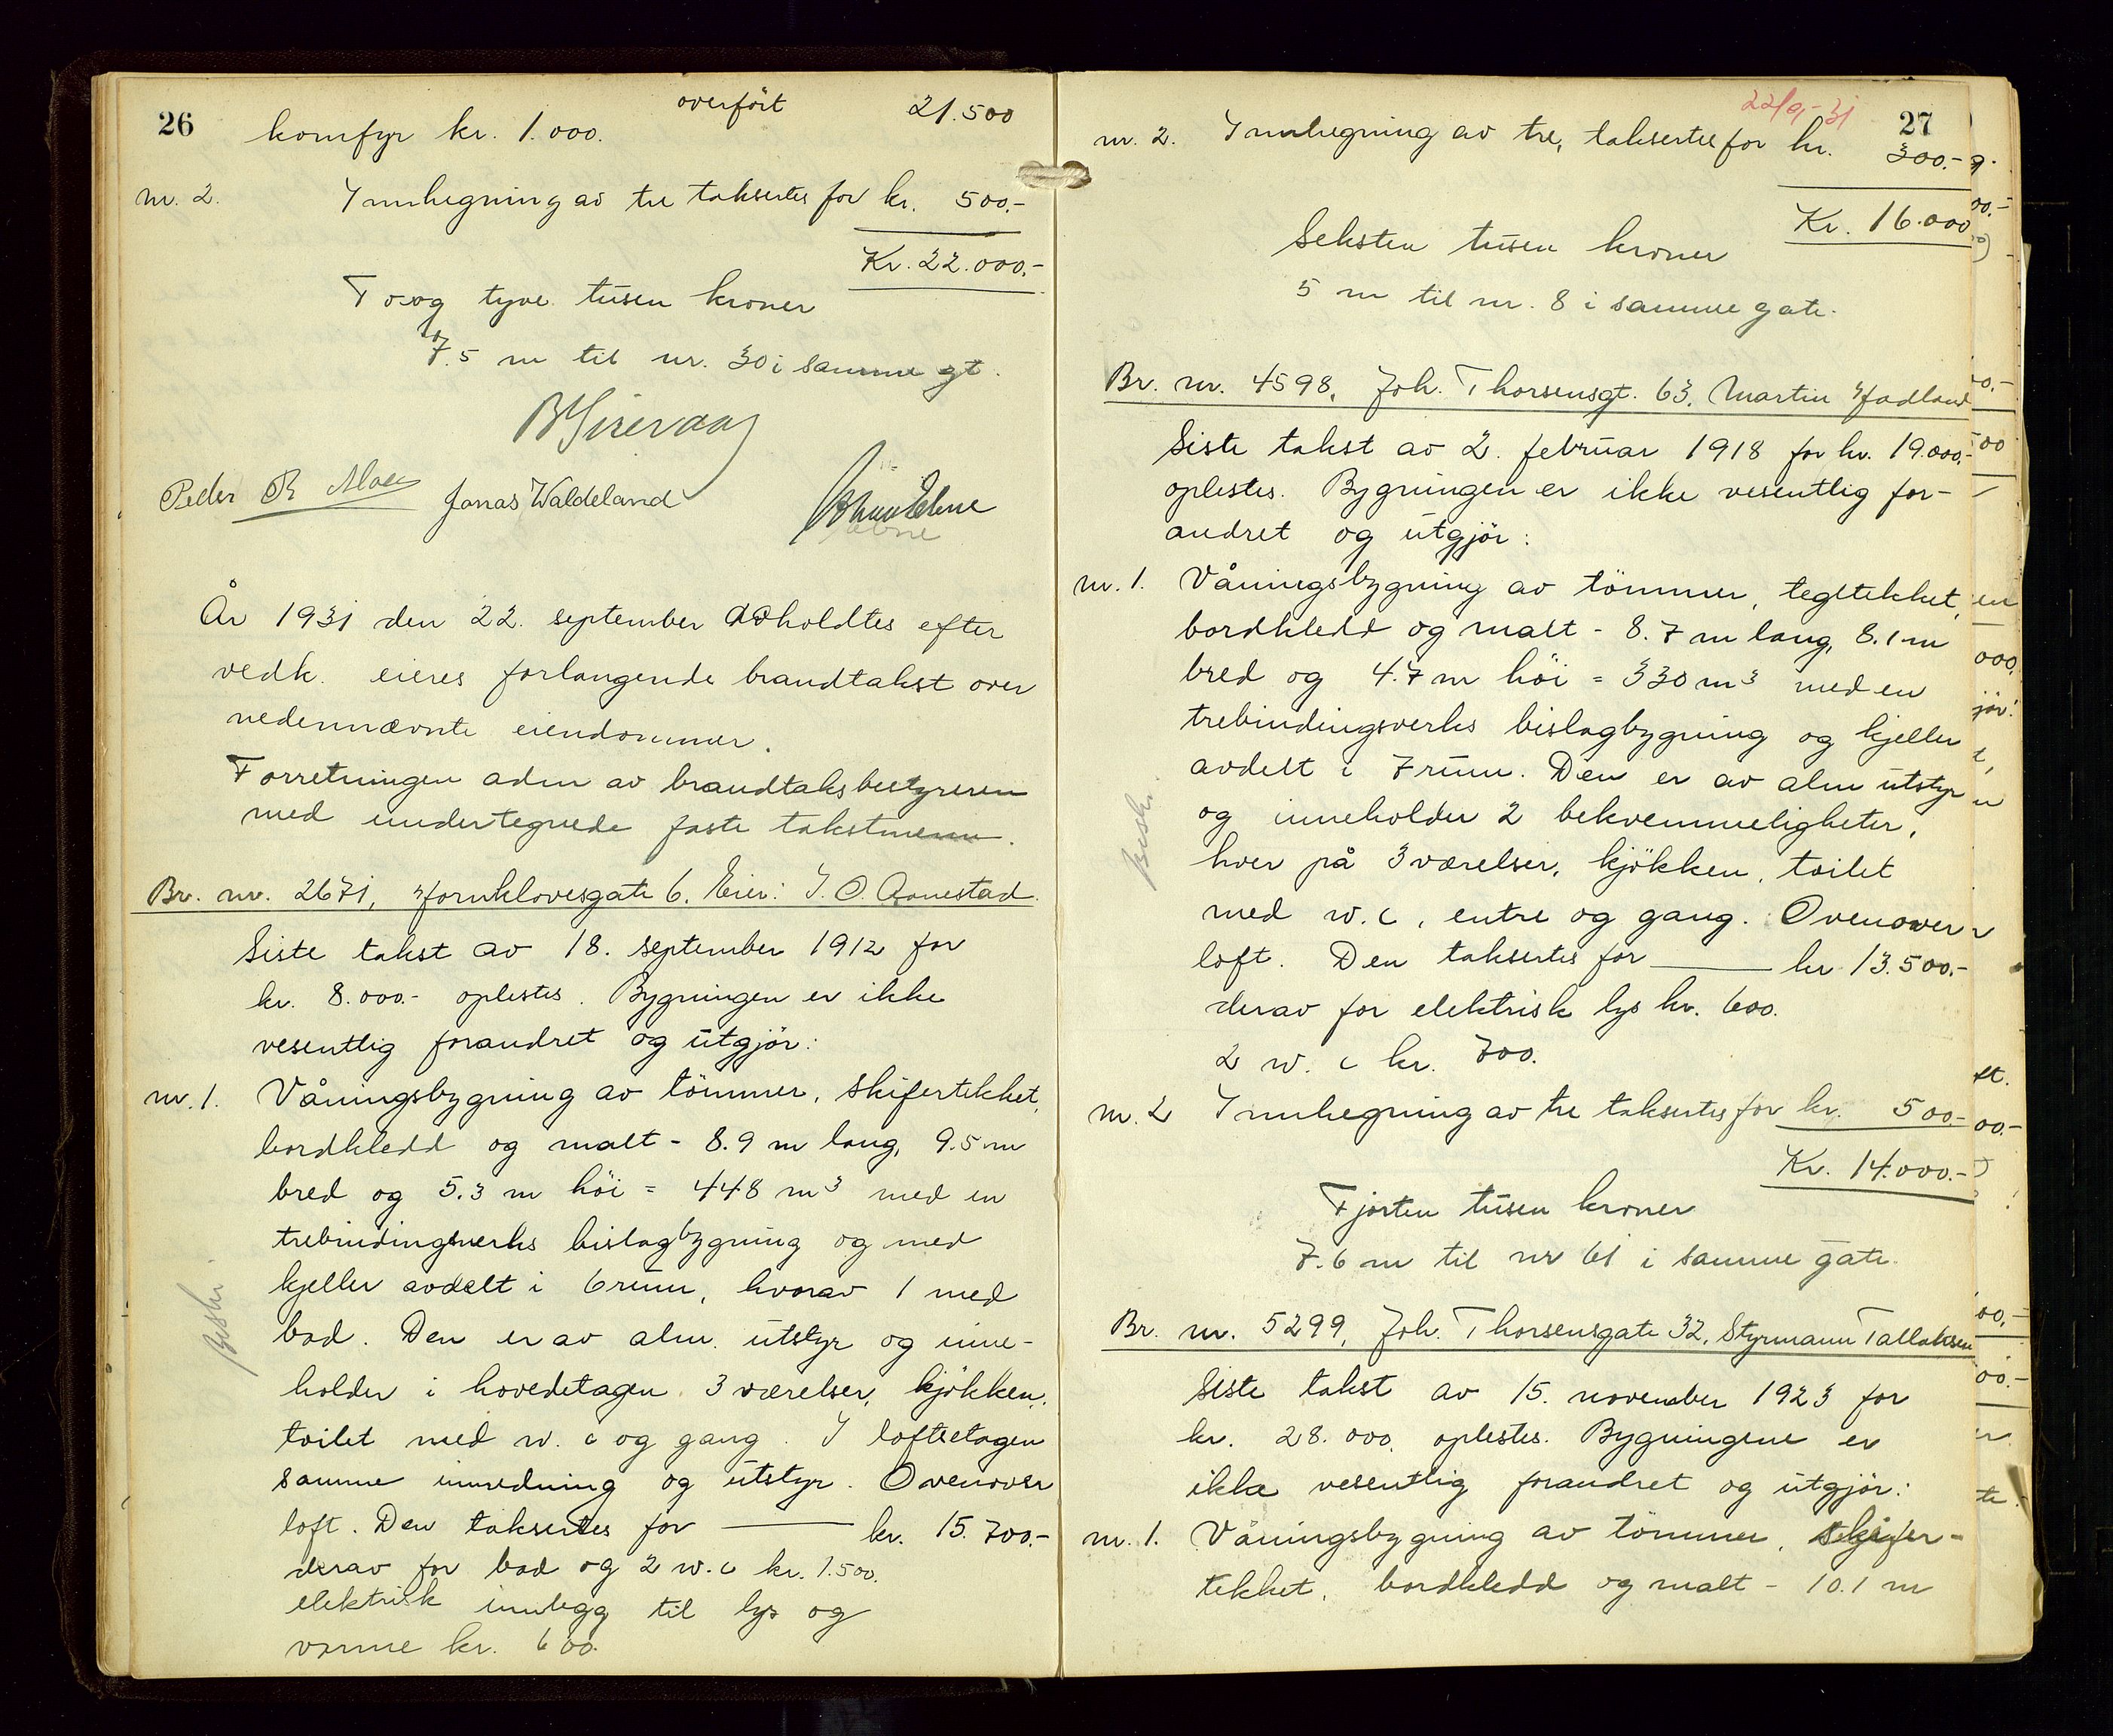 26
overfört 21.500
komfyr kr. 1.000.
nr. 2. Innhegning av tre taksertes for kr. 500.-
Kr. 22.000.-
To og tyve tusen kroner
7.5 m til nr. 30 i samme gt.
B Sirevaag
Peder R Moen Jonas Waldeland
År 1931 den 22. september avholdtes efter
vedk. eieres forlangende brandtakst over
nedennævnte eiendommer.
Forretningen adm av brandtaksbestyreren
med undertegnede faste takstmenn.
Br. nr. 2671, Hornklovesgate 6. Eier: I. O. Aanestad.
Siste takst av 18. september 1912 for
kr. 8.000.- oplestes. Bygningen er ikke
vesentlig forandret og utgjör:
nr. 1. Våningsbygning av tömmer, skifertekket,
bordkledd og malt - 8.9 m lang, 9.5 m
bred og 5.3 m höi = 448 m³ med en
trebindingsverks bislagbygning og med
kjeller avdelt i 6 rum, hvorav 1 med
bad. Den er av alm. utstyr og inne-
holder i hovedetagen 3 værelser, kjökken,
toilet med w. c og gang. I loftsetagen
samme innredning og utstyr. Ovenover
loft. Den taksertes for kr. 15.700.-
derav for bad og 2 w. c kr. 1.500.
elektrisk innlegg til lys og
varme kr. 600.
Besk.
22/9-31
27
nr. 2. Innhegning av tre, taksertes for kr. 300.-
Kr. 16.000
Seksten tusen kroner
5 m til nr. 8 i samme gate.
Br. nr. 4598, Joh. Thorsensgt. 63. Martin Hadland
Siste takst av 2. februar 1918 for kr. 19.000.-
oplestes. Bygningen er ikke vesentlig for-
andret og utgjör:
nr. 1. Våningsbygning av tömmer, tegltekket,
bordkledd og malt - 8.7 m lang, 8.1 m
bred og 4.7 m höi = 330 m³ med en
trebindingsverks bislagbygning og kjeller
avdelt i 7 rum. Den er av alm utstyr
og inneholder 2 bekvemmeligheter,
hver på 3 værelser, kjökken, toilet
med w. c, entre og gang. Ovenover
loft. Den taksertes for kr 13.500.-
derav for elektrisk lys kr. 600.
2 w. c kr. 700.
nr. 2 Innhegning av tre taksertes for kr. 500.-
Kr. 14.000.-
Fjorten tusen kroner
7.6 m til nr 61 i samme gate.
Br. nr. 5299, Joh. Thorsensgate 32, Styrmann Tallaksen
Siste takst av 15. november 1923 for
kr. 28.000. oplestes. Bygningene er
ikke vesentlig forandret og utgjör:
nr. 1. Våningsbygning av tömmer, skifer-
tekket, bordkledd og malt - 10.1 m
Besk.